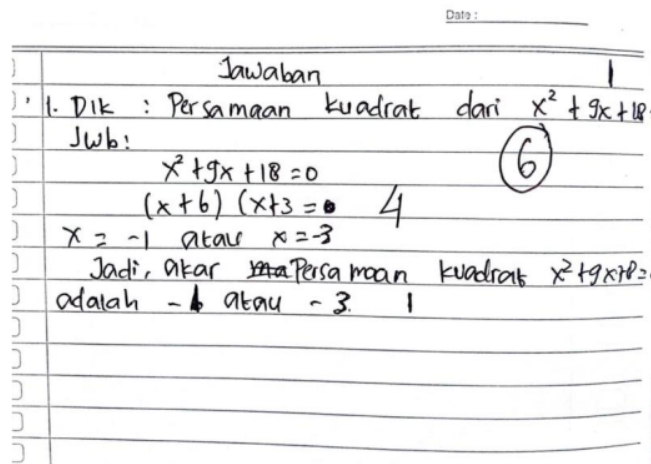 Date :
Jawaban 1
1. Dik : Persamaan kuadrat dari x² + 9x + 18
Jwb: 6
x² + 9x + 18 = 0
(x+6) (x+3 = 0 4
x = -1 atau x = -3
Jadi, akar Persamaan kuadrat x² + 9x+8=
adalah - atau - 3. 1